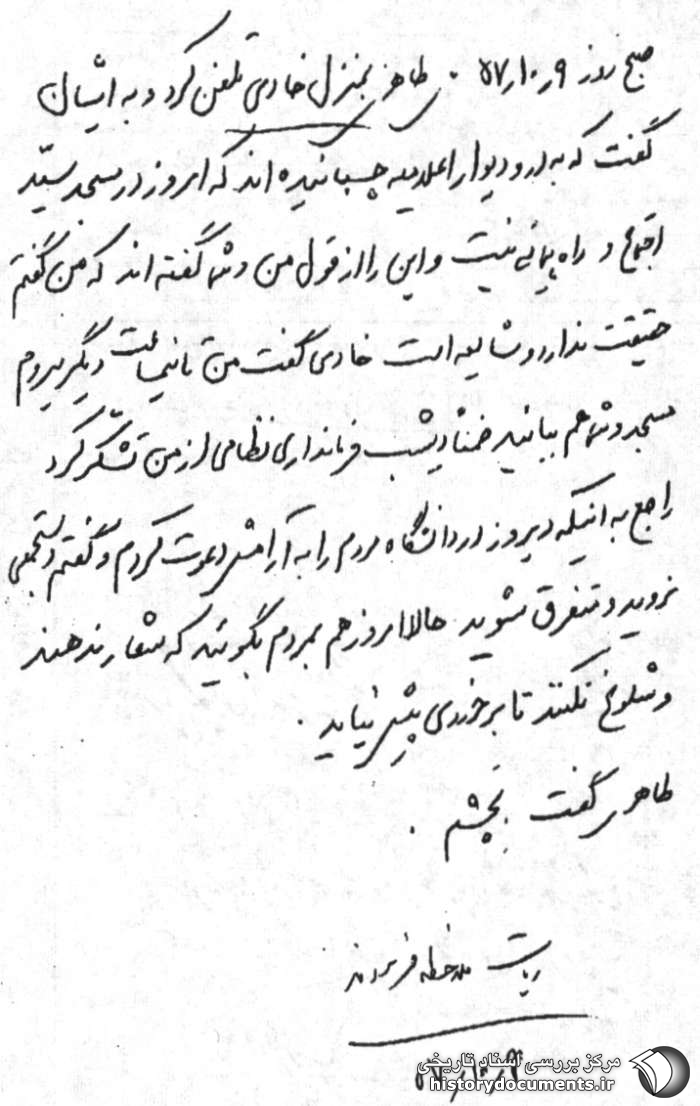 صبح روز ۵۷٫۱۰٫۹ طاهری بمنزل خادمی تلفن کرد و به ایشان
گفت که به در و دیوار اعلامیه چسبانیده اند که امروز در مسجد سید
اجتماع و راه پیمائی نیست و این را از قول من و شما گفته اند که من گفتم
حقیقت ندارد و شایعه است خادمی گفت من تا نیمساعت دیگر میروم
مسجد و شما هم بیائید ضمناً دیشب فرمانداری نظامی از من تشکر کرد
راجع به اینکه دیروز در دانشگاه مردم را به آرامش دعوت کردم و گفتم دستجمعی
نروید و متفرق شوید حالا امروز هم بمردم بگوئید که شعار ندهند
و شلوغ نکنند تا برخوردی پیش نیاید .
طاهری گفت بچشم .
ریاست ملاحظه فرمودند
مرکز بررسی اسناد تاریخی
historydocuments.ir